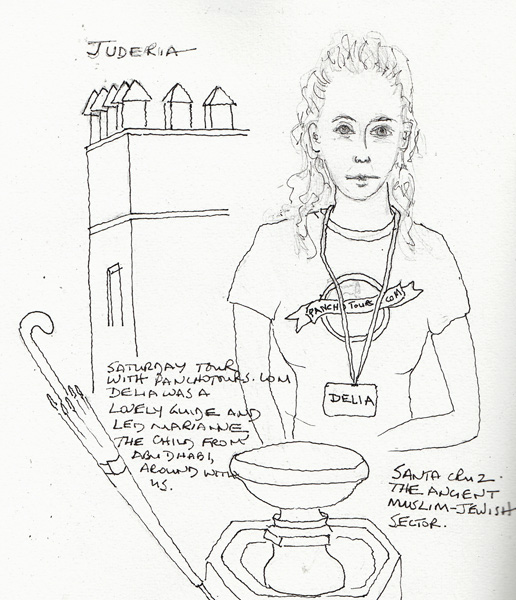 JUDERIA
PANCHO TOURS.COM
DELIA
SATURDAY TOUR
WITH PANCHOTOURS.COM
DELIA WAS A
LOVELY GUIDE AND
LED MARIANNE
THE CHILD FROM
ABU DHABI,
AROUND WITH
US.
SANTA CRUZ.
THE ANCIENT
MUSLIM-JEWISH
SECTOR.